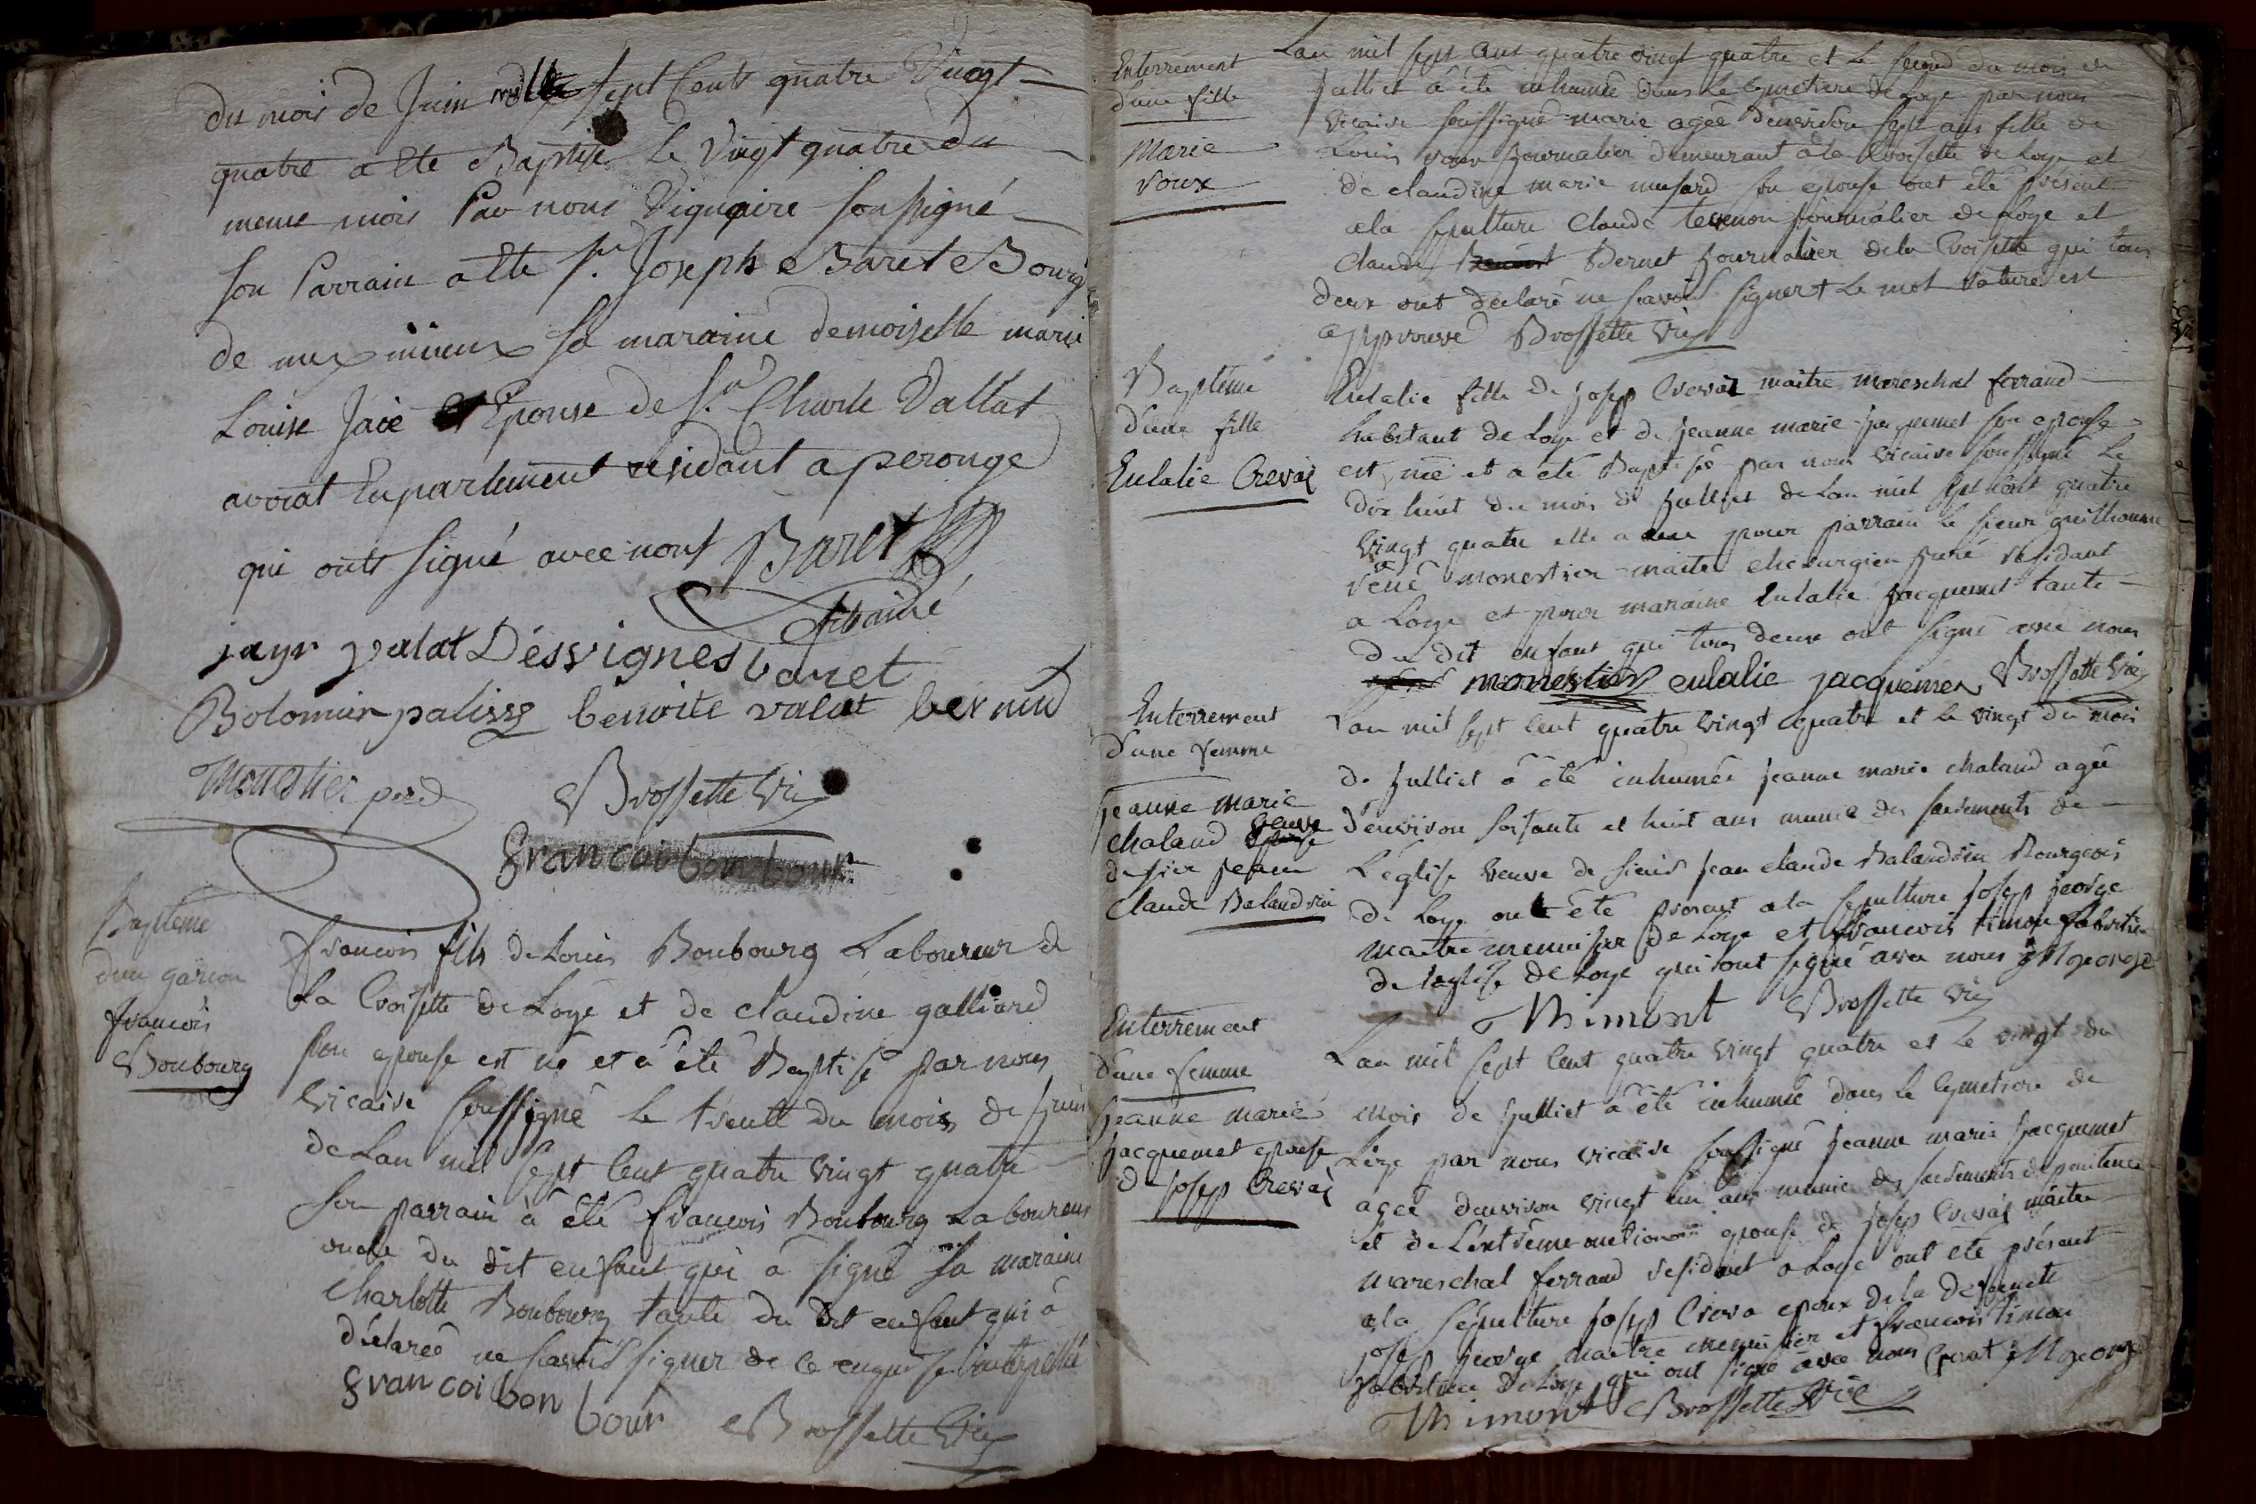 du mois de Juin mille sept Cents quatre Vingt
quatre a Ete Baptisé le Vingt quatre du
meme mois Par nous Viquaire sousigné
son Parrain a Ete Sr. Joseph Baret Bourg
de meximieux sa maraine demoiselle marie
Louise Jaïe Epouse de Sr. Charle Vallat
avocat En parlement residant a perouge
qui onts signé avec nous Baret
jayr valat Désvignes baret
Bolomier palisse benoite valat bernud
Monestier pere Brossette Vic
francoi bon bour
Bapteme
d'un garcon
francois
Boubourg
francois fils de Louis Boubourg Laboureur de
La Croisette de Loye et de claudine galliard
son epouse est né et à été Baptisé par nous
vicaire soussigné le trente du mois de juin
de Lan mil sept cent quatre vingt quatre
son parrain à été francois Boubourg Laboureur
oncle du dit enfant qui à signé sa maraine
charlotte Boubourg tante du dit enfant qui à
déclaréé ne savoir signer de ce enquise interpellé
francoi bon bour Brossette Vic
Enterrement
d'une fille
Marie
Roux
Lan mil sept cent quatre vingt quatre et le second du mois de
juillet à été inhumée dans le cymetiere de Loye par nous
vicaire soussigné marie agée d'environ sept ans fille de
Louis roux journalier demeurant à la Croisette de Loye et
de claudine marie musard son épouse ont été présent
a la sepulture Claude tevenon journalier de Loye et
claude Bernet journalier de la Croisette qui tous
deux ont déclaré ne savoir signer le mot rature est
approuvé Brossette Vic
Bapteme
d'une fille
Eulalie Crevat
Eulalie fille de josep Crevat maitre mareschal ferrand
habitant de Loye et de jeanne marie jacquemet son epouse
est née et a été Baptisé par nous vicaire soussigné le
dix huit du mois de juillet de Lan mil sept cent quatre
vingt quatre elle a eue pour parrain le sieur guilhaume
réné monestier maitre chirurgien juré residant
a Loye et pour maraine Eulalie jacquemet tante
du dit enfant qui tous deux ont signé avec nous
monestier eulalie jacquemet Brossette Vic
Enterrement
d'une femme
jeanne marie
chaland veuve
de sier jean
Claude Balandrin
Lan mil sept cent quatre vingt quatre et le vingt du mois
de julliet à été inhumée jeanne marie chaland agée
d'environ soisante et huit ans munie des sacrements de
L'église veuve de sieur jean claude Balandrin Bourgeois
de Loye ont été present a la sepulture josep jeorge
maitre menuisier de Loye et francois timon fabricien
de L'eglise de Loye qui ont signé avec nous george
Thimont Brossette Vic
Enterrement
d'une femme
jeanne marie
jacquemet epouse
de josep Crevat
Lan mil sept cent quatre vingt quatre et le vingt du
mois de julliet à été inhumée dans le cymetiere de
Loye par nous vicaire soussigné jeanne marie jacquemet
agée d'environ vingt un ans munie des sacrements de penitence
et de L'extreme onction epouse de josep Crevat maitre
mareschal ferrand residant a Loye ont eté présent
a la sépulture josep Creva epoux de la defunte
josep jeorge maitre menuisier et francois timon
fabricien de Loye qui ont signé avec nous Crevat george
Thimont Brossette Vic